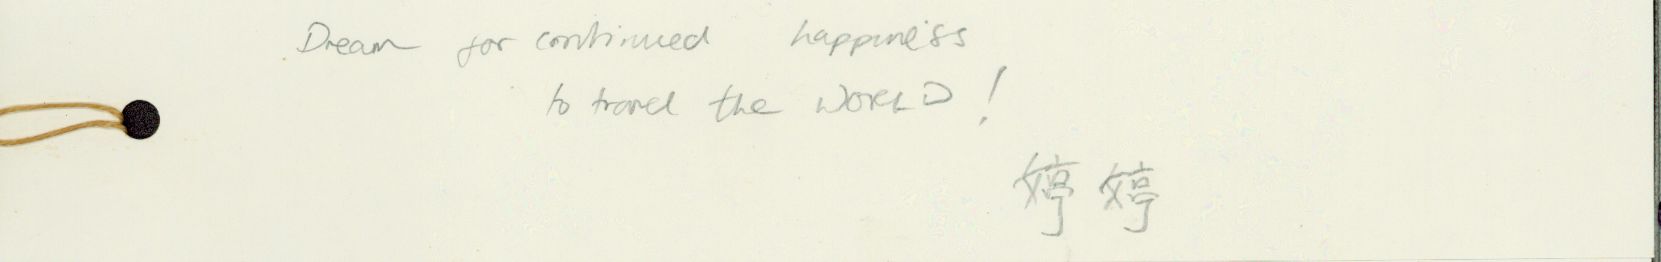 Dream for continued happiness
to travel the WORLD!
婷婷